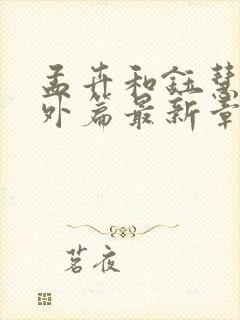 孟卉和鈺慧
外篇最新章
茗夜